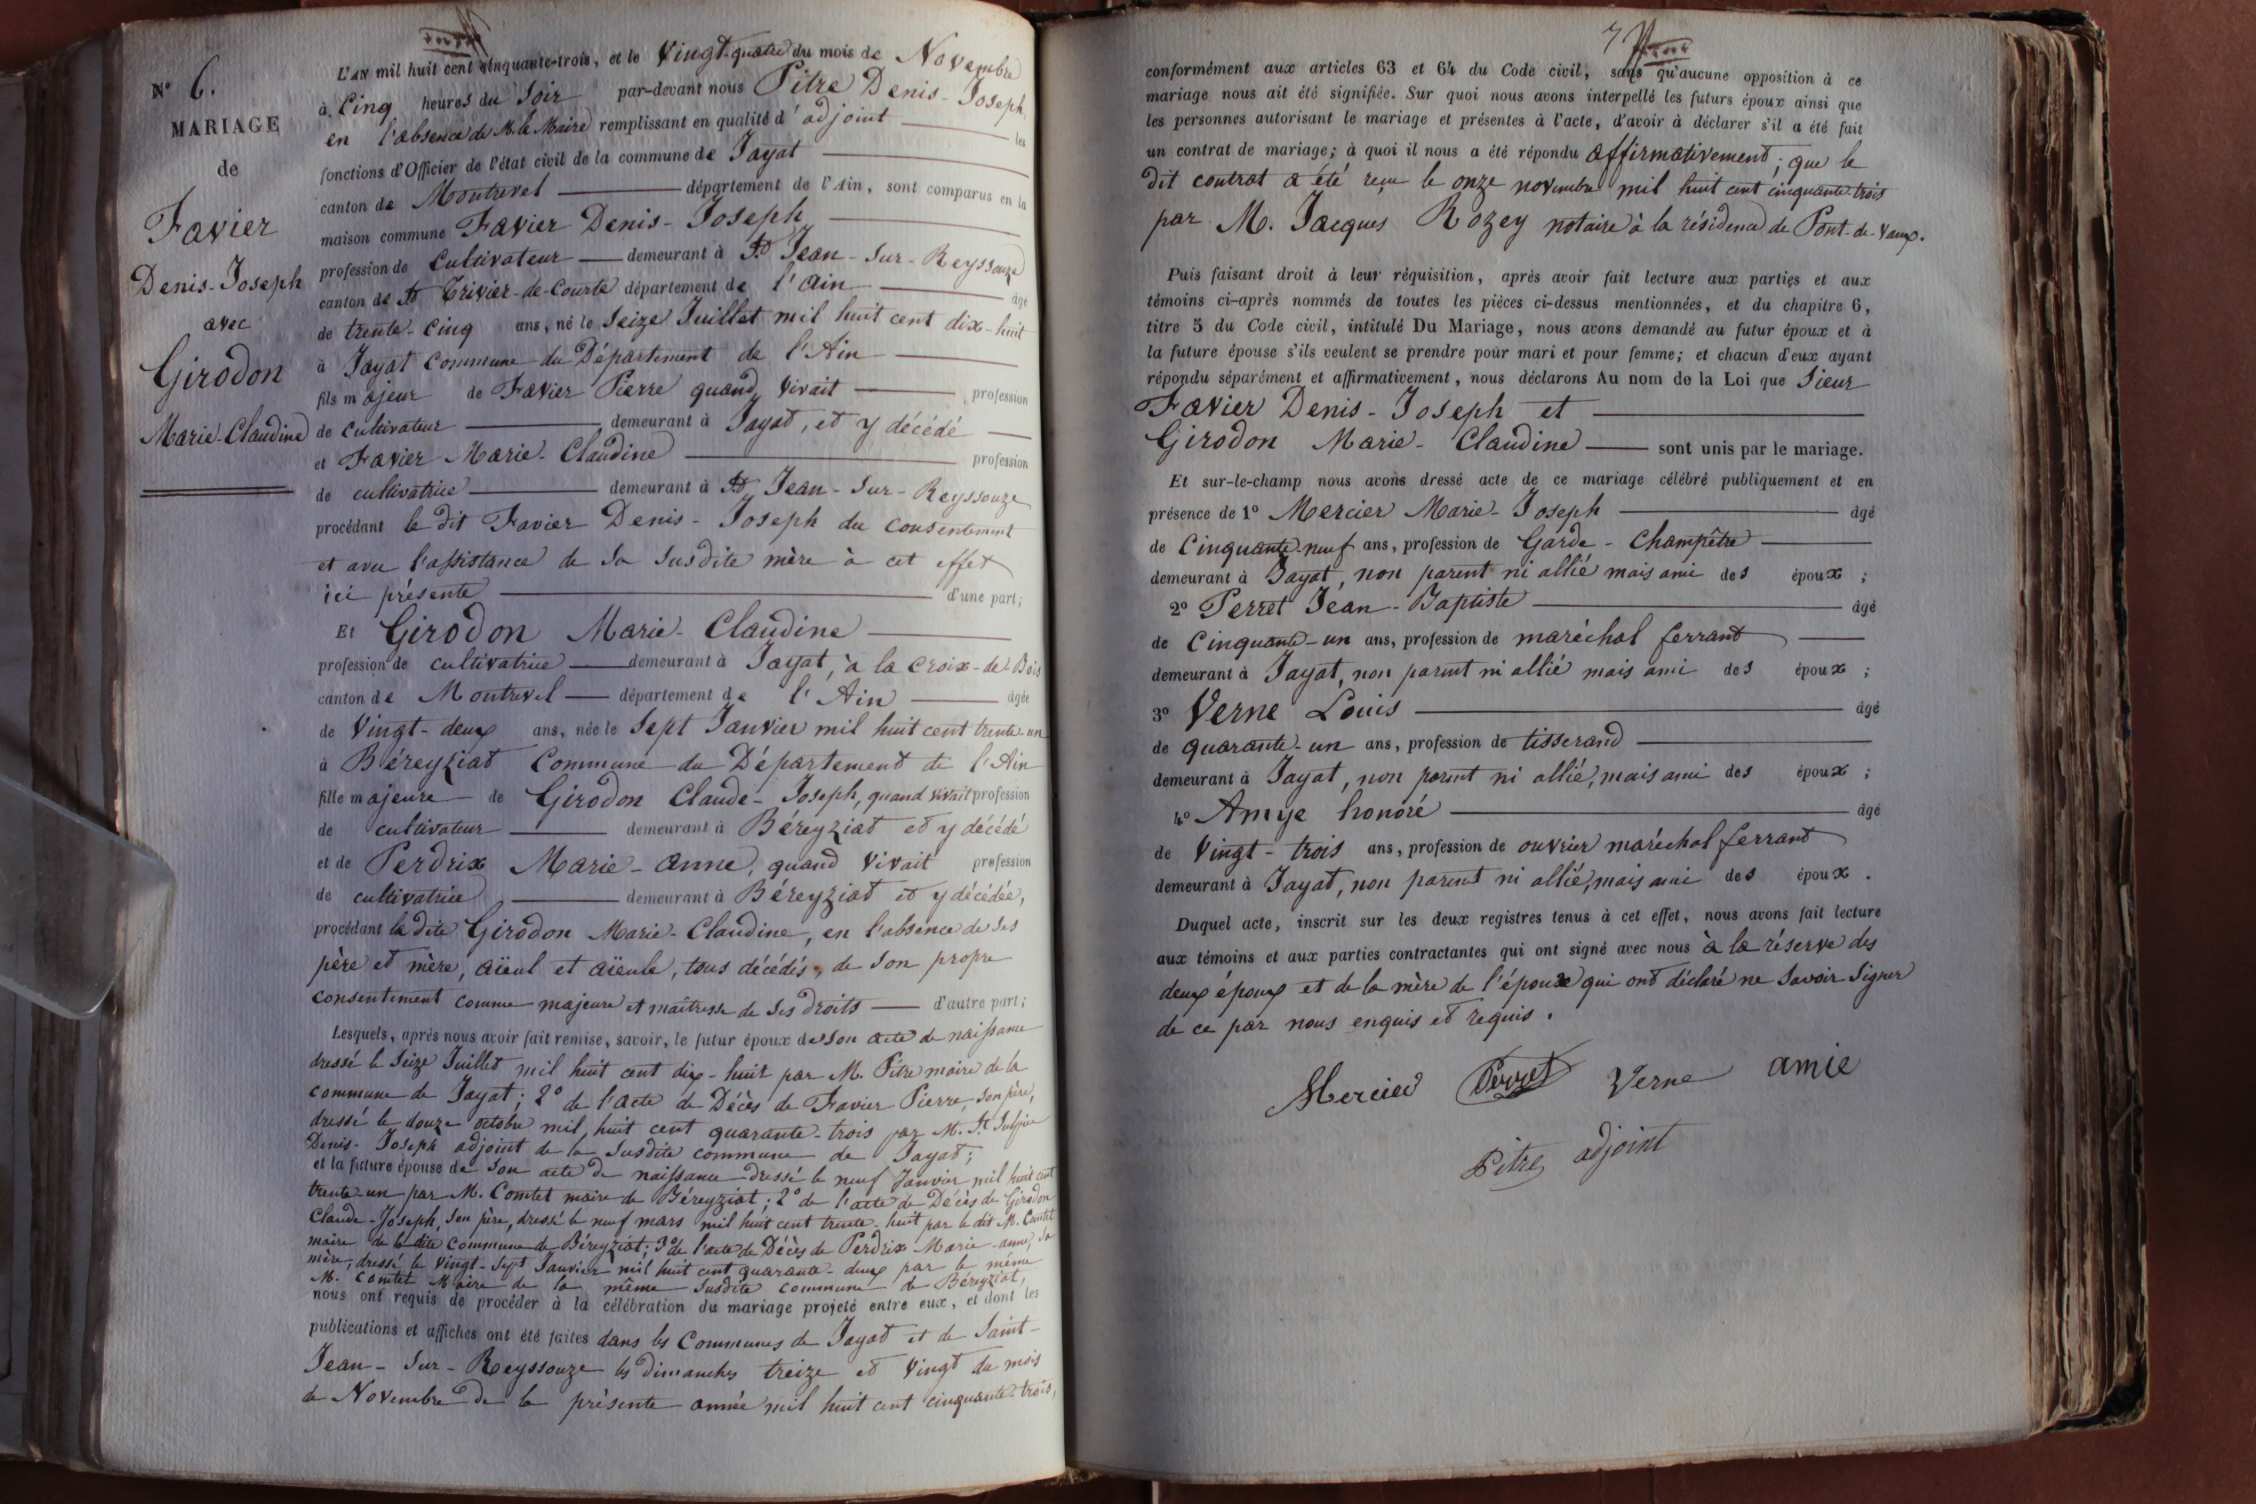 N° 6.
MARIAGE
de
Favier
Denis-Joseph
avec
Girodon
Marie-Claudine
L'AN mil huit cent cinquante-trois, et le Vingt-quatre du mois de Novembre
à Cinq heures du Soir par-devant nous Pitre Denis-Joseph,
en l'absence de M. le Maire remplissant en qualité d'adjoint les
fonctions d'Officier de l'état civil de la commune de Jayat
canton de Montrevel département de l'Ain, sont comparus en la
maison commune Favier Denis-Joseph
profession de Cultivateur demeurant à St Jean-Sur-Reyssouze
canton de St Trivier-de-Courte département de l'Ain âgé
de trente-cinq ans, né le Seize Juillet mil huit cent dix-huit
à Jayat Commune du Département de l'Ain
fils majeur de Favier Pierre quand vivait profession
de cultivateur demeurant à Jayat, et y décédé
et Favier Marie-Claudine profession
de cultivatrice demeurant à St Jean-Sur-Reyssouze
procédant le dit Favier Denis-Joseph du consentement
et avec l'assistance de Sa Susdite mère à cet effet
ici présente d'une part;
Et Girodon Marie-Claudine
profession de cultivatrice demeurant à Jayat, à la Croix-de-Bois
canton de Montrevel département de l'Ain âgée
de Vingt-deux ans, née le Sept Janvier mil huit cent trente-un
à Béreyziat Commune du Département de l'Ain
fille majeure de Girodon Claude-Joseph, quand vivait profession
de cultivateur demeurant à Béreyziat et y décédé
et de Perdrix Marie-anne, quand vivait profession
de cultivatrice demeurant à Béreyziat et y décédée,
procédant la dite Girodon Marie-Claudine, en l'absence de Ses
père et mère, aïeul et aïeule, tous décédés, de Son propre
consentement comme majeure et maîtresse de Ses droits d'autre part;
Lesquels, après nous avoir fait remise, savoir, le futur époux de Son acte de naissance
dressé le Seize Juillet mil huit cent dix-huit par M. Pitre maire de la
commune de Jayat; 2° de l'acte de Décès de Favier Pierre, Son père,
dressé le douze octobre mil huit cent quarante-trois par M. St Sulpice
Denis-Joseph adjoint de la Susdite commune de Jayat;
et la future épouse de Son acte de naissance dressé le neuf Janvier mil huit cent
trente-un par M. Comtet maire de Béreyziat; 2° de l'acte de Décès de Girodon
Claude-Joseph, Son père, dressé le neuf mars mil huit cent trente-huit par le dit M. Comtet
maire de la dite commune de Béreyziat; 3° de l'acte de Décès de Perdrix Marie-anne, Sa
mère, dressé le Vingt-Sept Janvier mil huit cent quarante-deux par le même
M. Comtet Maire de la même Susdite commune de Béreyziat,
nous ont requis de procéder à la célébration du mariage projeté entre eux, et dont les
publications et affiches ont été faites dans les Communes de Jayat et de Saint-
Jean-Sur-Reyssouze les dimanches treize et Vingt du mois
de Novembre de la présente année mil huit cent cinquante-trois,
7
conformément aux articles 63 et 64 du Code civil, sans qu'aucune opposition à ce
mariage nous ait été signifiée. Sur quoi nous avons interpellé les futurs époux ainsi que
les personnes autorisant le mariage et présentes à l'acte, d'avoir à déclarer s'il a été fait
un contrat de mariage; à quoi il nous a été répondu affirmativement; que le
dit contrat a été reçu le onze novembre mil huit cent cinquante-trois
par M. Jacques Rozey notaire à la résidence de Pont-de-Vaux.
Puis faisant droit à leur réquisition, après avoir fait lecture aux parties et aux
témoins ci-après nommés de toutes les pièces ci-dessus mentionnées, et du chapitre 6,
titre 5 du Code civil, intitulé Du Mariage, nous avons demandé au futur époux et à
la future épouse s'ils veulent se prendre pour mari et pour femme; et chacun d'eux ayant
répondu séparément et affirmativement, nous déclarons Au nom de la Loi que Sieur
Favier Denis-Joseph et
Girodon Marie-Claudine sont unis par le mariage.
Et sur-le-champ nous avons dressé acte de ce mariage célébré publiquement et en
présence de 1° Mercier Marie-Joseph âgé
de Cinquante-neuf ans, profession de Garde-Champêtre
demeurant à Jayat, non parent ni allié mais ami des époux;
2° Perret Jean-Baptiste âgé
de Cinquante-un ans, profession de maréchal ferrant
demeurant à Jayat, non parent ni allié mais ami des époux;
3° Verne Louis âgé
de quarante-un ans, profession de tisserand
demeurant à Jayat, non parent ni allié, mais ami des époux;
4° Amye honoré âgé
de Vingt-trois ans, profession de ouvrier maréchal ferrant
demeurant à Jayat, non parent ni allié, mais ami des époux.
Duquel acte, inscrit sur les deux registres tenus à cet effet, nous avons fait lecture
aux témoins et aux parties contractantes qui ont signé avec nous à la réserve des
deux époux et de la mère de l'époux qui ont déclaré ne Savoir Signer
de ce par nous enquis et requis.
Mercier Perret Verne amie
Pitre adjoint